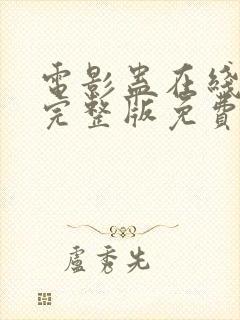 電影蠱在綫
完整版免費
盧秀先